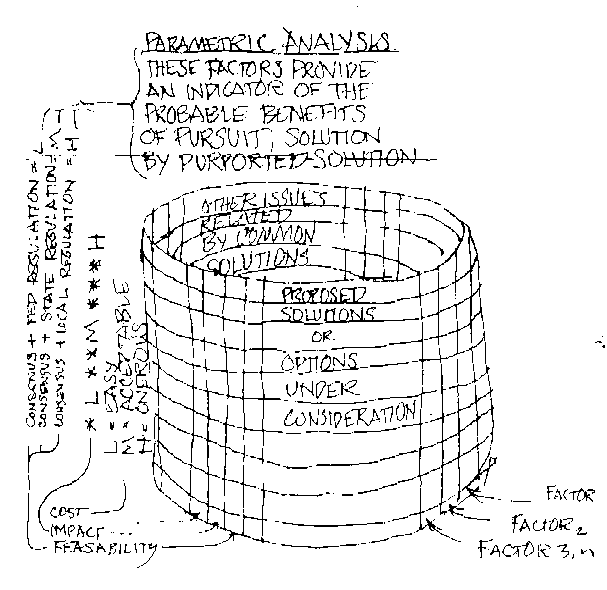 PARAMETRIC ANALYSIS
THESE FACTORS PROVIDE
AN INDICATOR OF THE
PROBABLE BENEFITS
OF PURSUIT, SOLUTION
BY PURPORTED SOLUTION
CONSENSUS + FED REGULATION = L
CONSENSUS + STATE REGULATION = M
CONSENSUS + LOCAL REGULATION = H
* L ** M *** H
L = EASY
M = ACCEPTABLE
H = ONEROUS
OTHER ISSUES
RELATED
BY COMMON
SOLUTIONS
PROPOSED
SOLUTIONS
OR
OPTIONS
UNDER
CONSIDERATION
COST
IMPACT
FEASABILITY
FACTOR
FACTOR 2
FACTOR 3, n